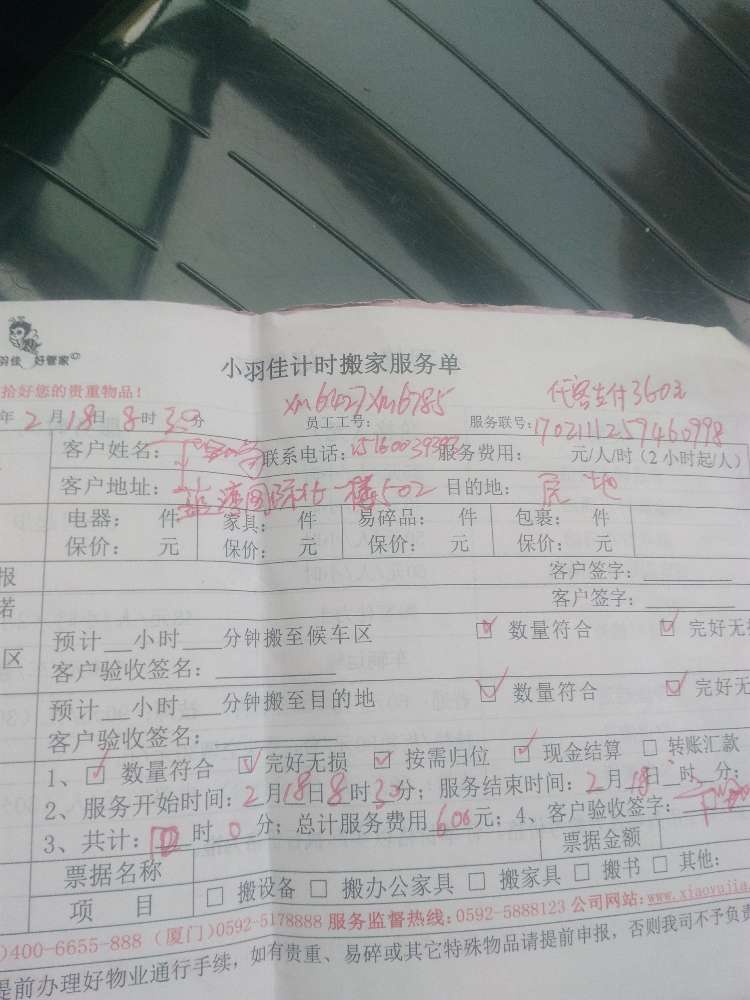 羽佳 好管家
小羽佳计时搬家服务单
拾好您的贵重物品!
年2月18日8时30分 员工工号: xm6427xm6785 服务联号: 代客支付360元
1702111257460998
客户姓名: 联系电话: 服务费用: 元/人/时(2小时起/人)
客户地址: 国际 一楼502 目的地:
电器: 件 家具: 件 易碎品: 件 包裹: 件
保价: 元 保价: 元 保价: 元 保价: 元
报 客户签字:
诺 客户签字:
预计__小时___分钟搬至候车区 ☑ 数量符合 ☑ 完好无损
区 客户验收签名:
预计__小时___分钟搬至目的地 ☑ 数量符合 ☑ 完好无
客户验收签名:
1、☑ 数量符合 ☑ 完好无损 ☑ 按需归位 ☑ 现金结算 □ 转账汇款
2、服务开始时间:2月18日8时30分; 服务结束时间:2月18日__时__分;
3、共计: 时0分; 总计服务费用606元; 4、客户验收签字:
票据名称 票据金额
项 目 □ 搬设备 □ 搬办公家具 □ 搬家具 □ 搬书 □ 其他:
)400-6655-888 (厦门)0592-5178888 服务监督热线:0592-5888123 公司网站:www.xiaoyujia
提前办理好物业通行手续,如有贵重、易碎或其它特殊物品请提前申报,否则我司不予负责